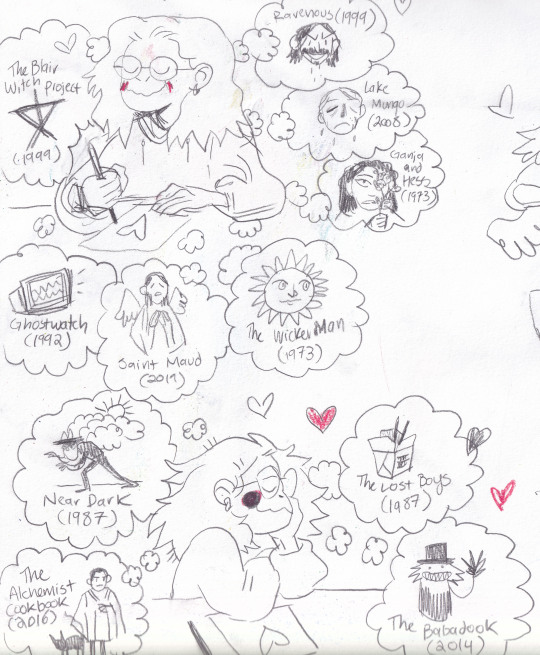 Ravenous (1999)
The Blair
Witch project
(1999)
Lake
Mungo
(2008)
Ganja
and
Hess
(1973)
Ghostwatch
(1992)
Saint Maud
(2019)
The Wicker Man
(1973)
Near Dark
(1987)
The Lost Boys
(1987)
The
Alchemist
Cookbook
(2016)
The Babadook
(2014)